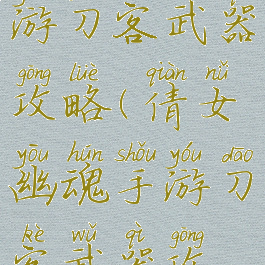 游刀客武器
gōng lüè qiàn nǚ
攻略(倩女
yōu hún shǒu yóu dāo
幽魂手游刀
kè wǔ qì gōng
客武器攻